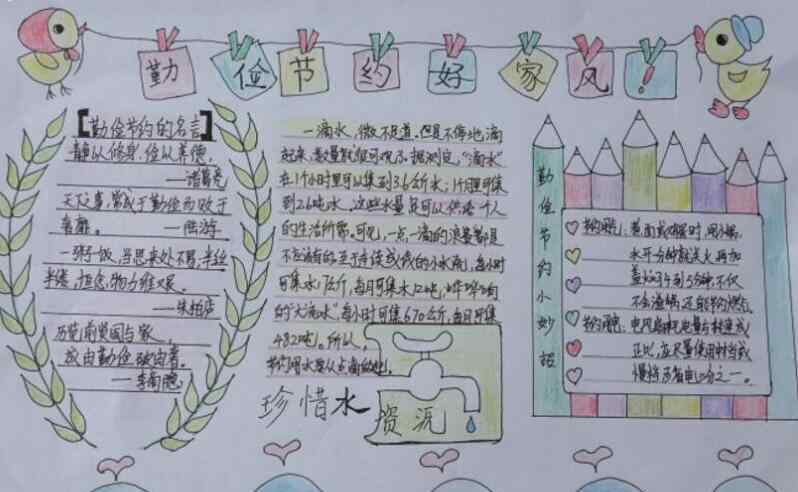 勤俭节约好家风!
【勤俭节约的名言】
静以修身,俭以养德,
——诸葛亮
天下之事,常成于勤俭而败于
奢靡。 ——陆游
一粥一饭,当思来处不易,半丝
半缕,恒念物力维艰。
——朱柏庐
历览前贤国与家,
成由勤俭破由奢。
——李商隐
一滴水,微不足道。但是不停地滴
起来,数量就很可观了。据测定,“滴水”
在1个小时里可以集到3.6公斤水;1个月里可集
到2.6吨水。这些水量足可以供给一个人
的生活所需。可见,一点一滴的浪费都是
不应该有的。至于连续成线的小水流,每小时
可集水17公斤,每月可集水12吨,哗哗响
的“大流水”,每小时可集670公斤,每月可集
482吨。所以,
节约用水要从点滴做起。
珍惜水
资沅
勤俭节约小妙招
节约煤气:煮面或鸡蛋时,用小锅,
水开
盖焖3到5分钟,不仅
不会溏锅,还能节约燃气。
节约用电:电风扇耗电量与转速成
正比,应尽量使用中档或
慢档可省电